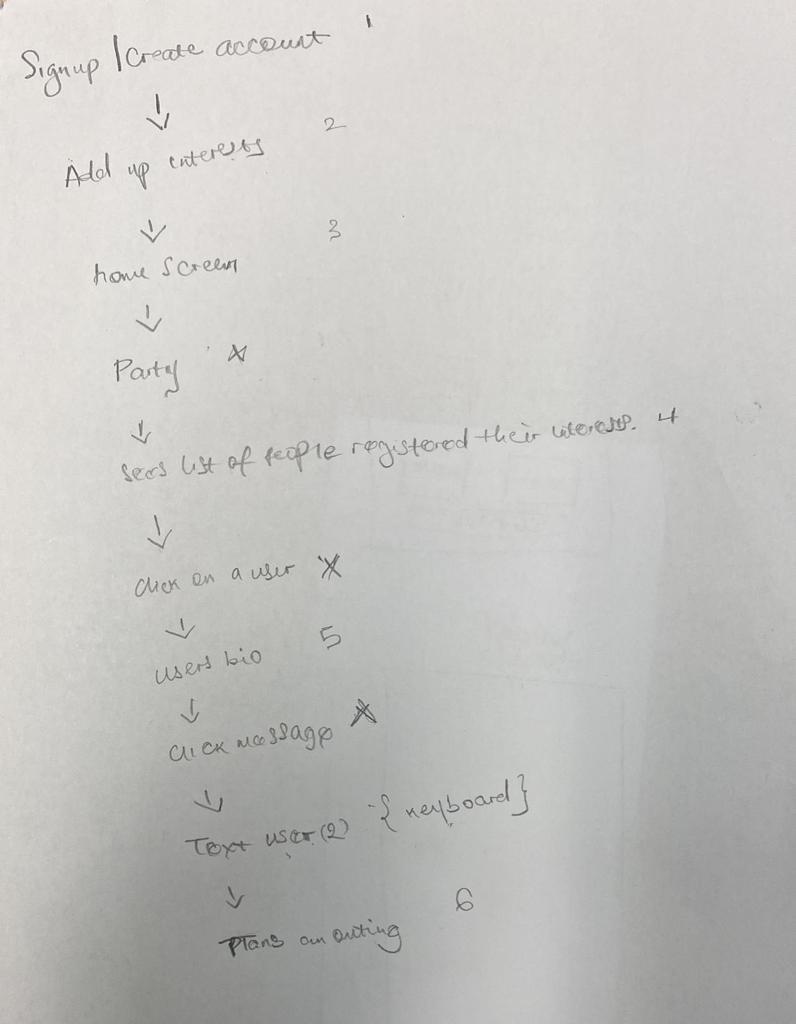 Signup / Create account 1
↓
Add up interests 2
↓
home screen 3
↓
Party *
↓
sees list of people registered their interests. 4
↓
click on a user *
↓
users bio 5
↓
click message *
↓
Text user (2) {keyboard}
↓
Plans an outing 6